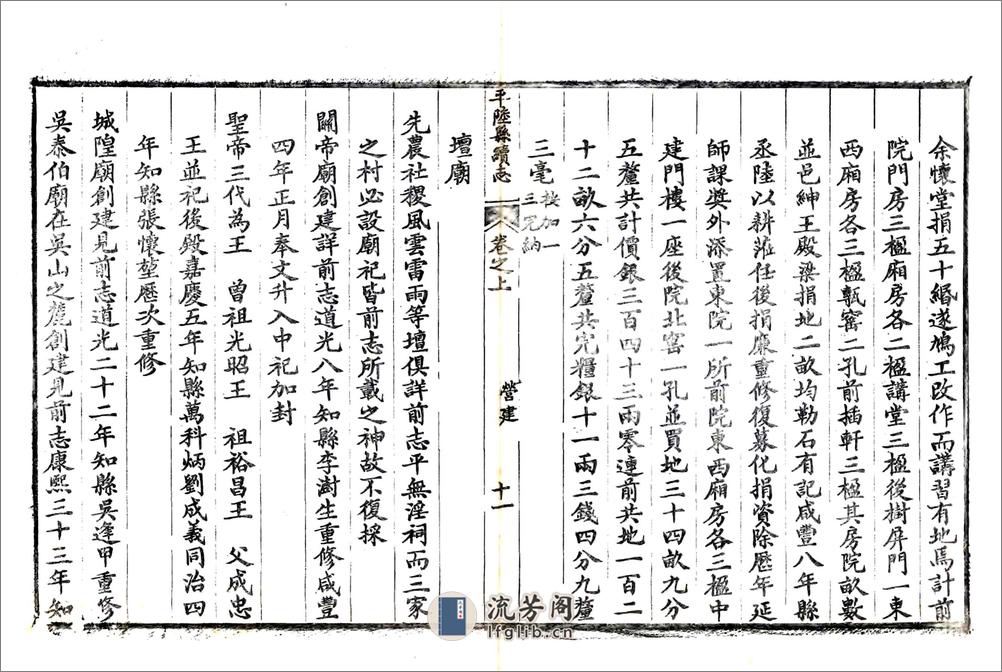 余懷堂捐五十緡遂鳩工改作而講習有地焉計前
院門房三楹廂房各二楹講堂三楹後樹屏門一東
西廂房各三楹甎窰二孔前插軒三楹其房院畝數
並邑紳王殿梁捐地二畝均勒石有記咸豐八年縣
丞陸以耕涖任後捐廉重修復募化捐資除歷年延
師課奬外添置東院一所前院東西廂房各三楹中
建門樓一座後院北窰一孔並買地三十四畝九分
五釐共計價銀三百四十三兩零連前共地一百二
十二畝六分五釐共完糧銀十一兩三錢四分九釐
三毫按加一三完納
平陸縣續志 卷之上 營建 十一
壇廟
先農社稷風雲雷雨等壇俱詳前志平無淫祠而三家
之村必設廟祀皆前志所載之神故不復採
關帝廟創建詳前志道光八年知縣李澍生重修咸豐
四年正月奉文升入中祀加封
聖帝三代為王 曾祖光昭王 祖裕昌王 父成忠
王並祀後殿嘉慶五年知縣萬科炳劉成義同治四
年知縣張懷堃歷次重修
城隍廟創建見前志道光二十二年知縣吳逢甲重修
吳泰伯廟在吳山之麓創建見前志康熙三十三年知
流芳阁
lfglib.cn